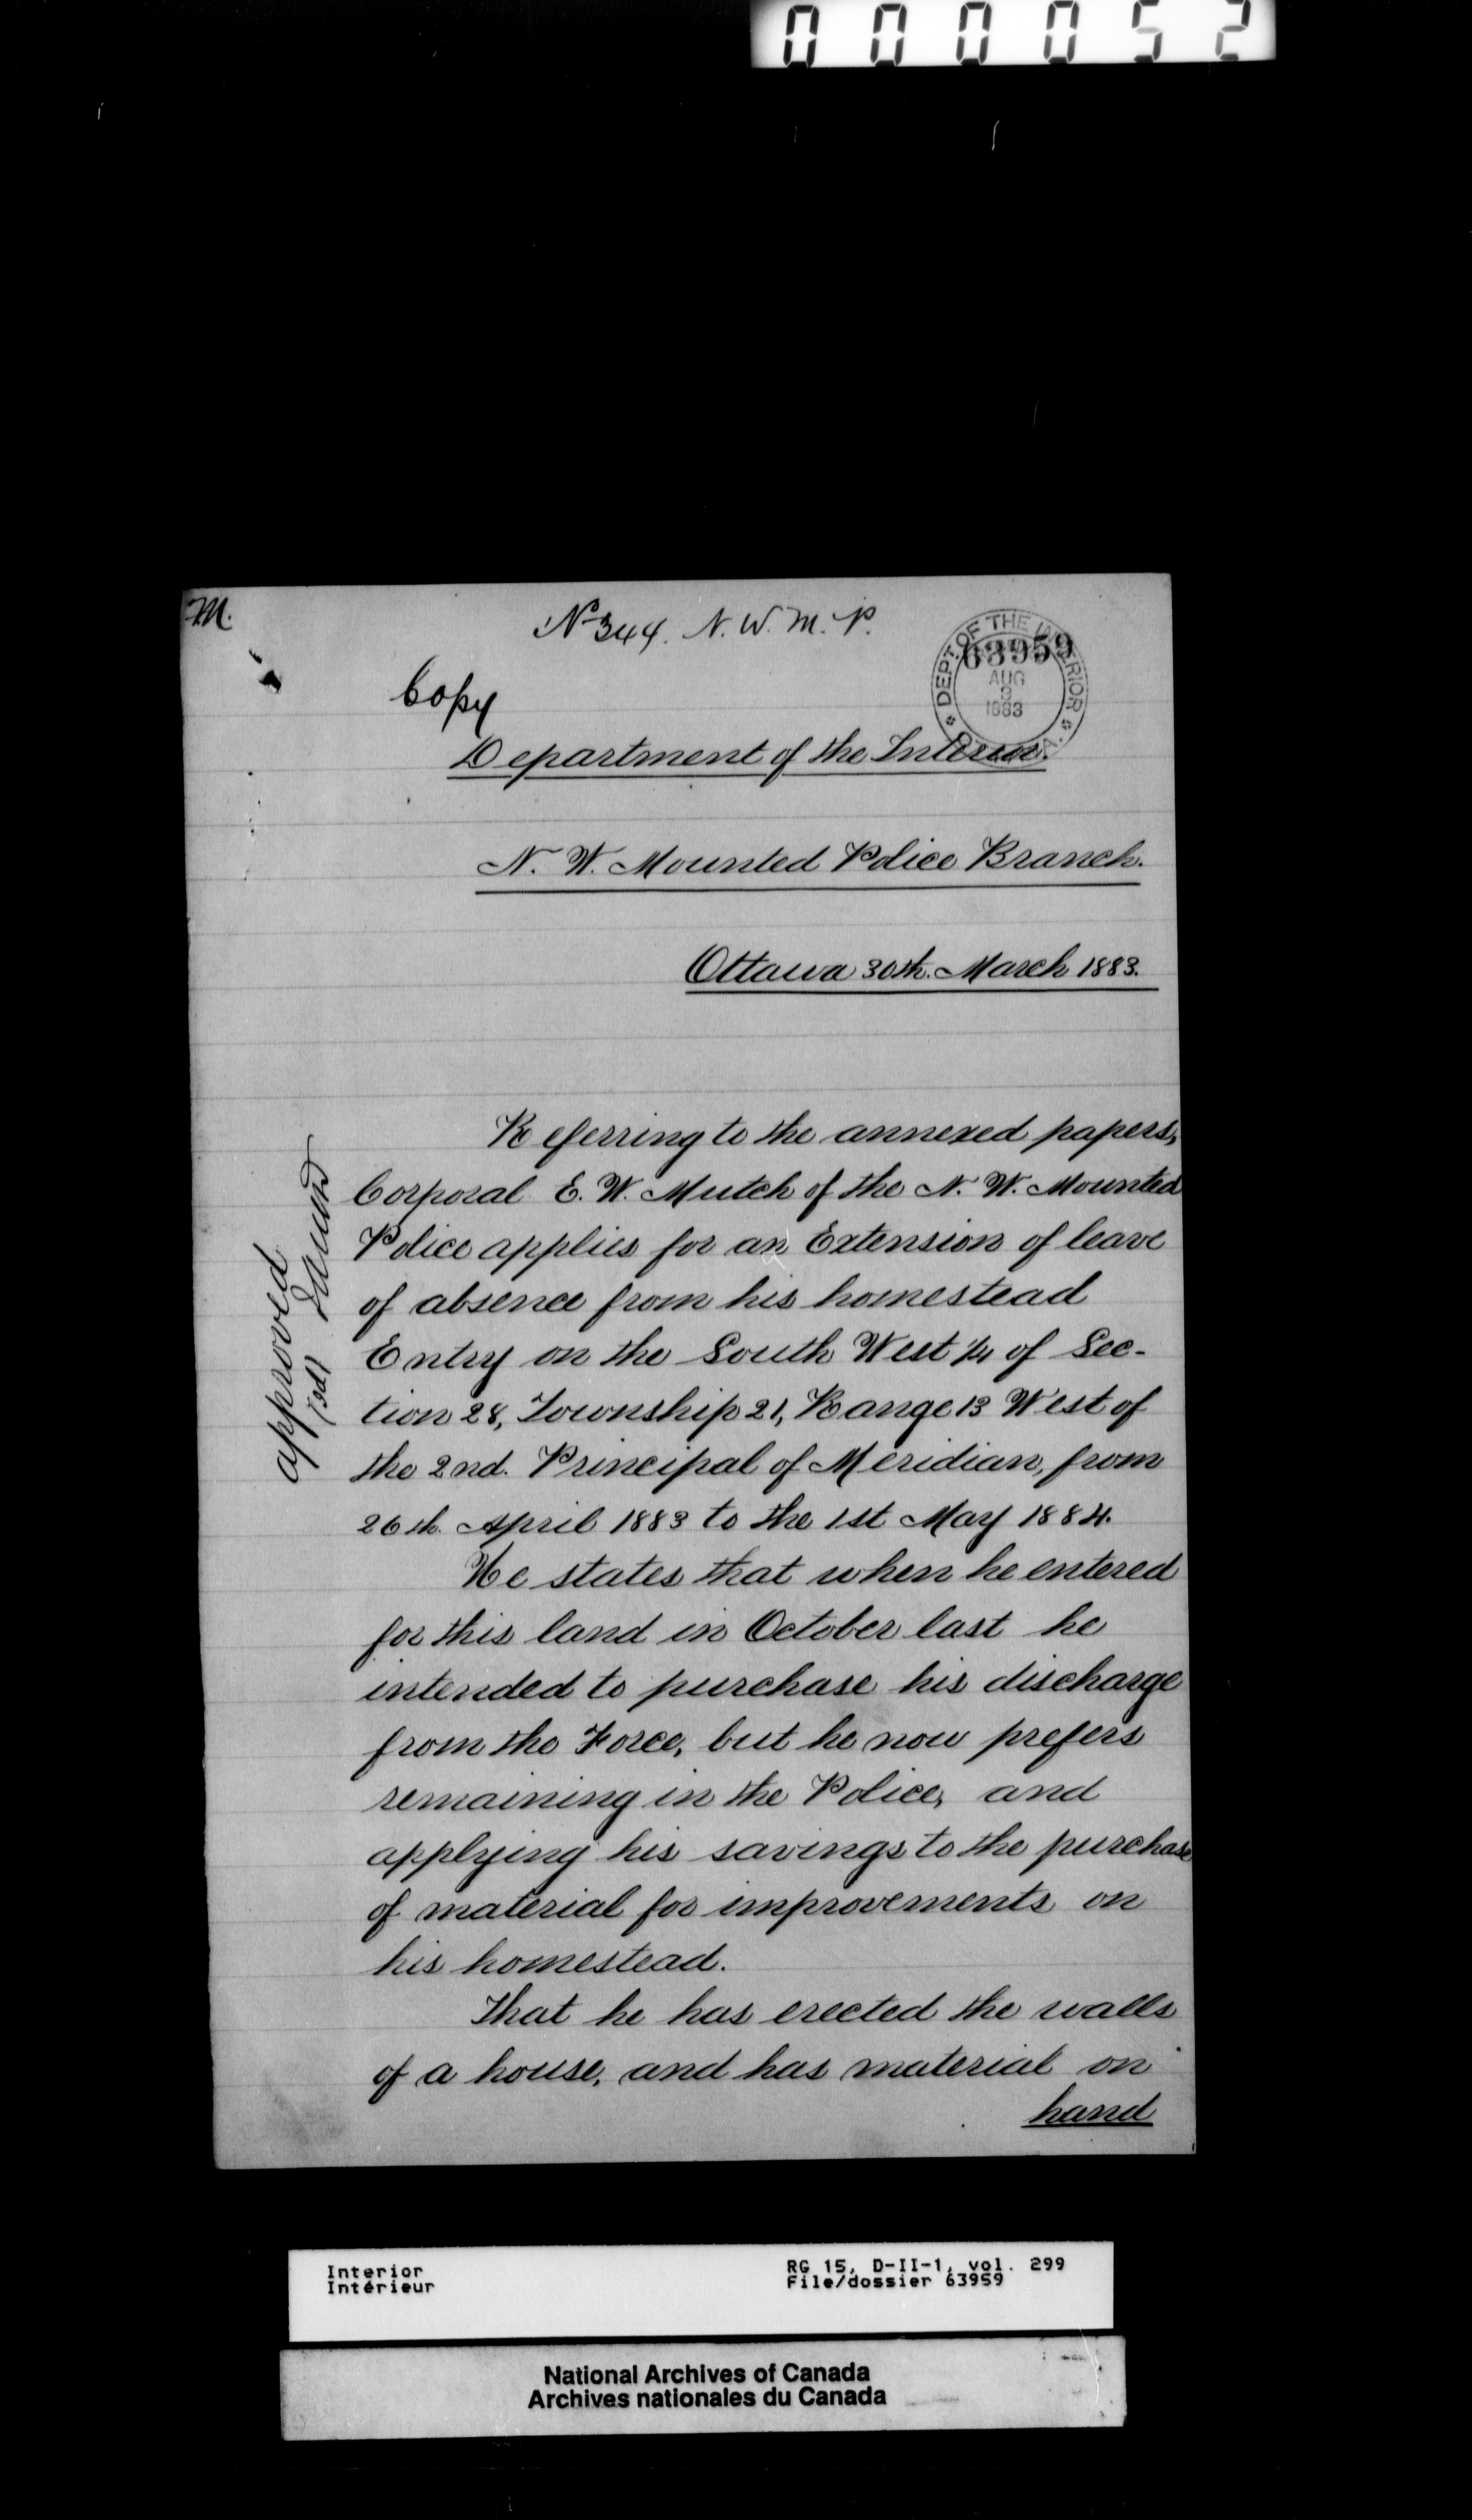 000052
M.
No 344. N. W. M. P.
DEPT. OF THE INTERIOR
63959
AUG
3
1883
Copy
Department of the Interior.
N. W. Mounted Police Branch.
Ottawa 30th. March 1883.
Referring to the annexed papers,
Corporal E. W. Mutch of the N. W. Mounted
Police applies for an Extension of leave
of absence from his homestead
Entry on the South West 1/4 of Sec-
tion 28, Township 21, Range 13 West of
the 2nd. Principal of Meridian, from
26th. April 1883 to the 1st May 1884.
He states that when he entered
for this land in October last he
intended to purchase his discharge
from the Force, but he now prefers
remaining in the Police, and
applying his savings to the purchase
of material for improvements on
his homestead.
That he has erected the walls
of a house, and has material on
hand
approved
Interior
Intérieur
RG 15, D-II-1, vol. 299
File/dossier 63959
National Archives of Canada
Archives nationales du Canada